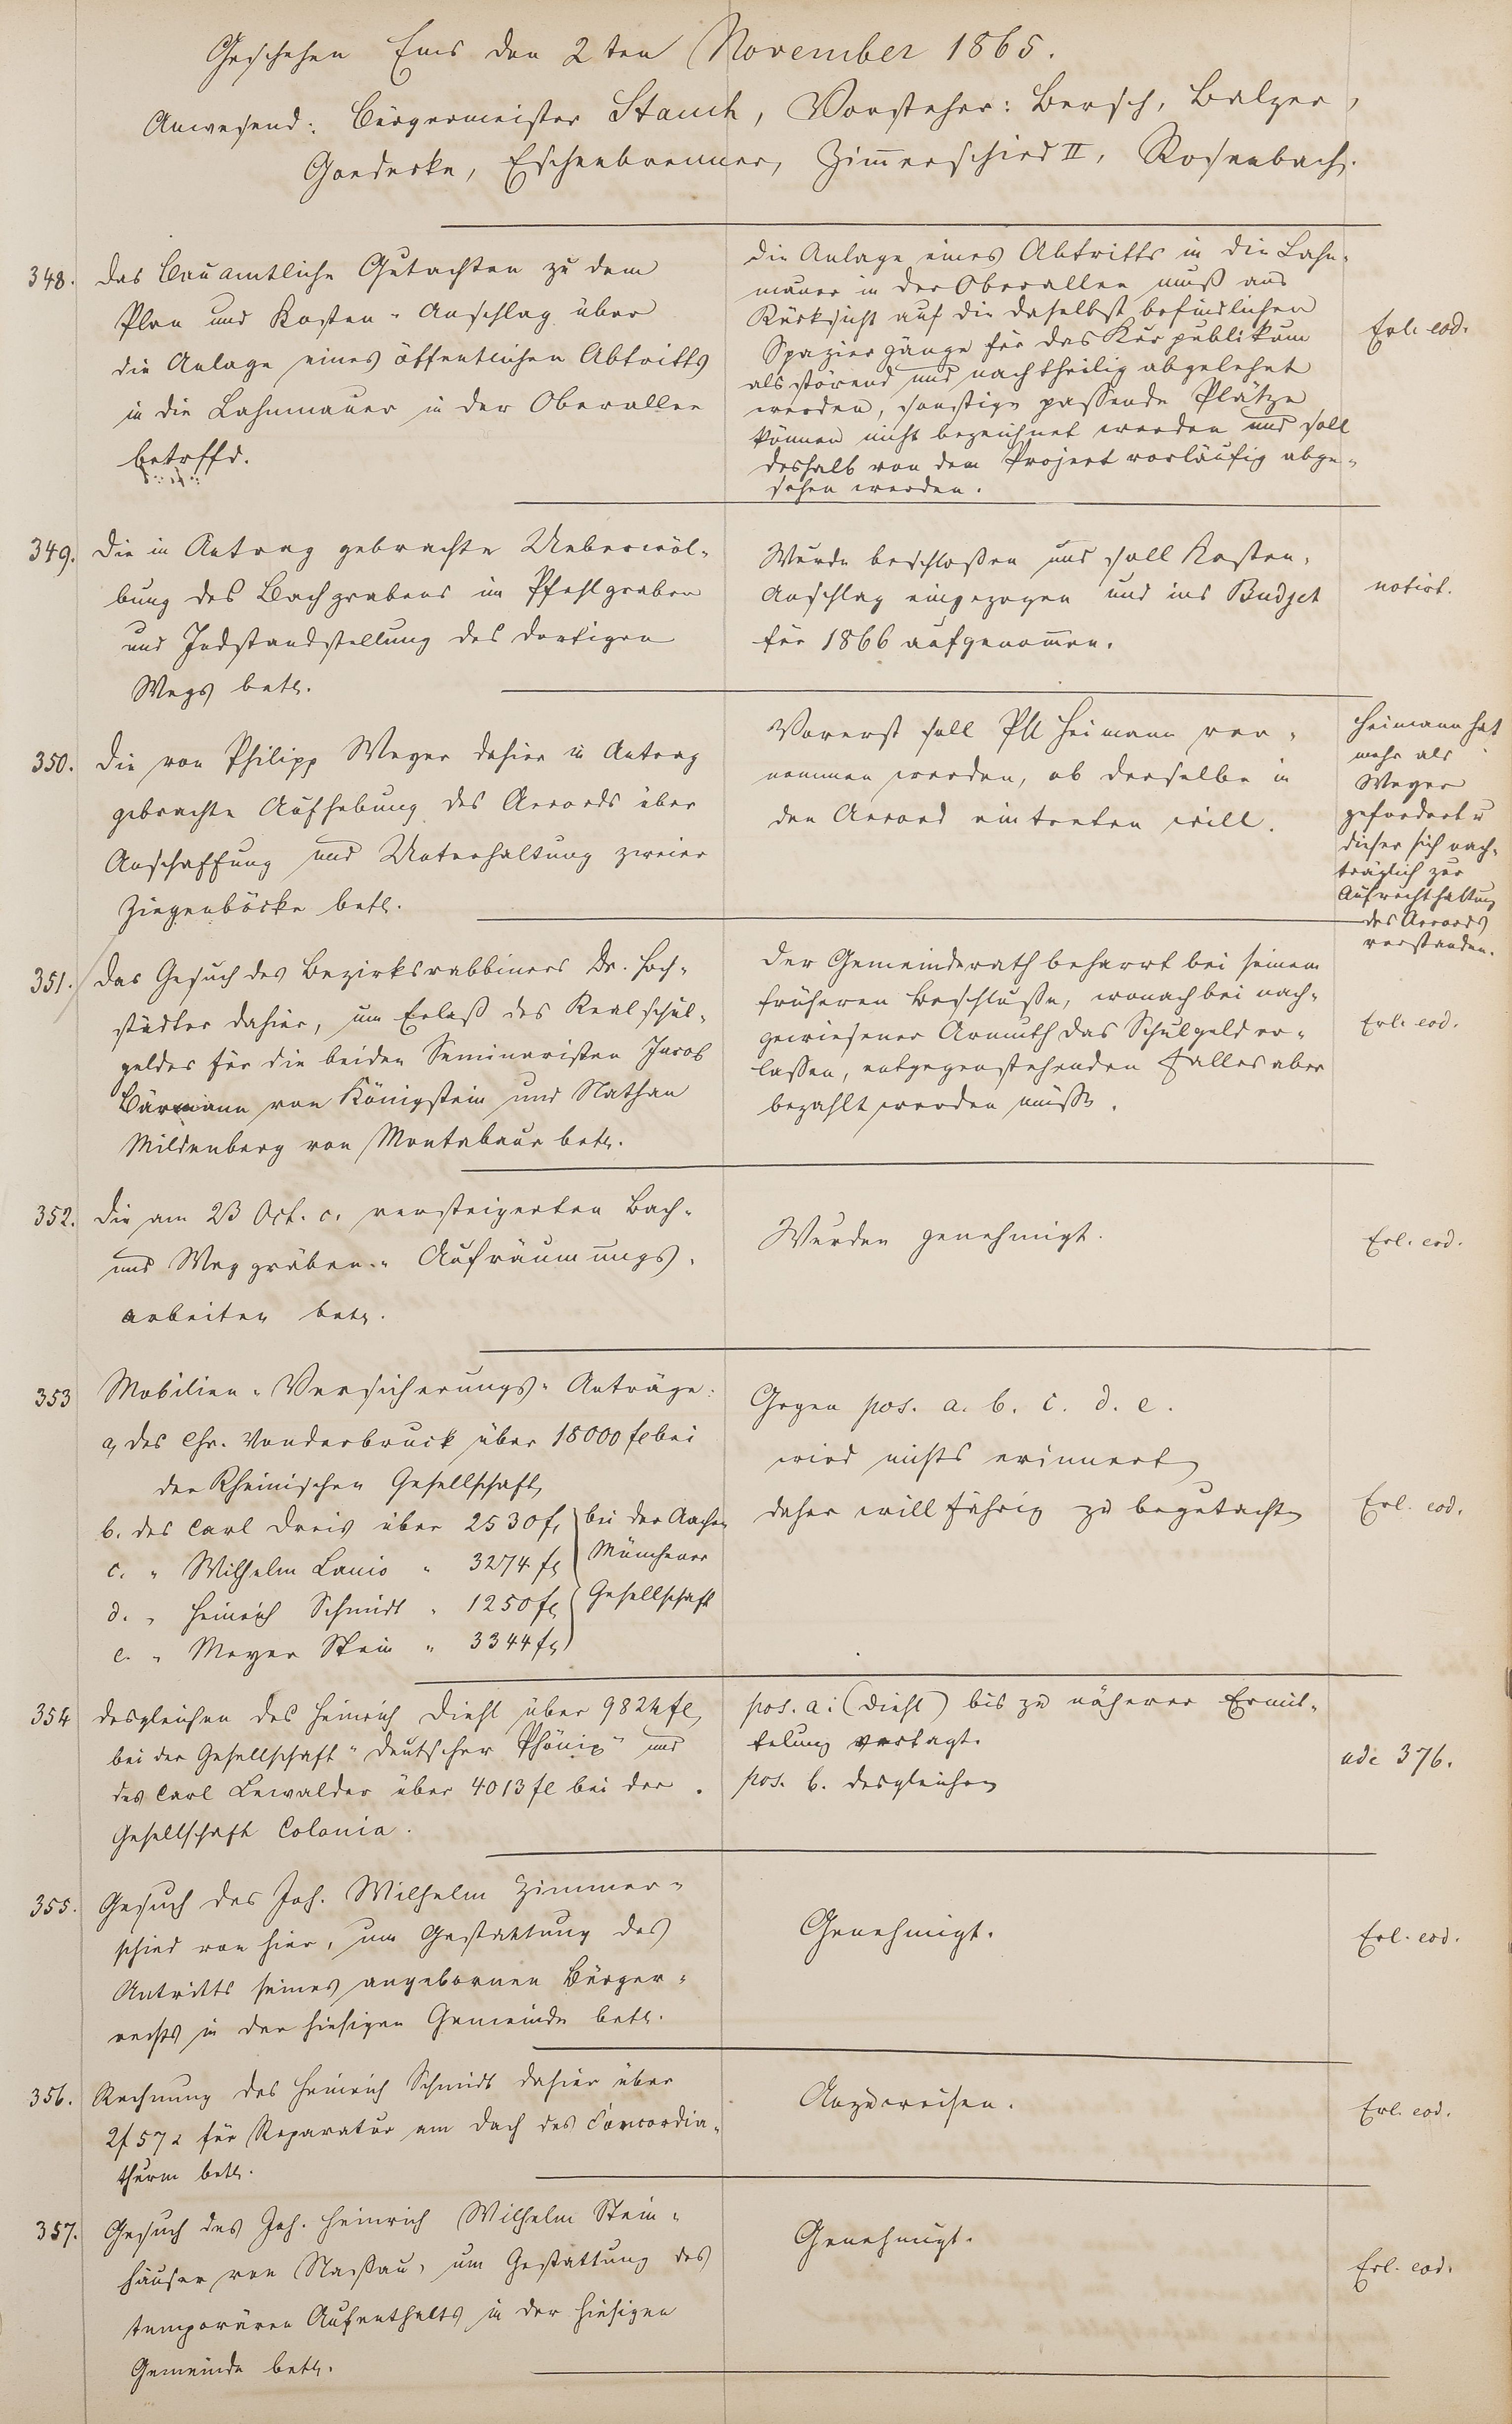 Geschehen Ems den 2ten November 1865.
Anwesend: Bürgermeister Stauch, Vorsteher: Bersch, Balzer,
Goedecke, Eschenbrenner, Zimerschied II, Rosenbach.
348.
das Bauamtliche Gutachten zu dem
Plan und Kosten-Anschlag über
die Anlage eines öffentlichen Abtritts
in die Lahnmauer in der Oberallee
betrffd.
die Anlage eines Abtritts in die Lahn-
mauer in der Oberallee muß aus
Rücksicht auf die daselbst befindlichen
Spaziergänge für das Kurpublikum
als störend und nachtheilig abgelehnt
werden, sonstige passende Plätze
können nicht bezeichnet werden und soll
deshalb von dem Project vorläufig abge-
sehen werden.
Erl. eod.
349.
die in Antrag gebrachte Ueberwöl-
bung des Bachgrabens im Pfahlgraben
und Indstandstellung des dortigen
Wegs betr.
Wurde beschloßen und soll Kosten-
Anschlag eingezogen und ins Budjet
für 1866 aufgenomen.
notirt.
350.
die von Philipp Weyer dahier in Antrag
gebrachte Aufhebung des Accords über
Anschaffung und Unterhaltung zweier
Ziegenböcke betr.
Vorerst soll Ph Heimann ver-
nommen werden, ob derselbe in
den Accord eintreten will.
Heimann hat
mehr als
Weyer
gefordert u
dieser sich nach-
träglich zur
Aufrechthaltung
des Accords
verstanden.
351.
das Gesuch des Bezirksrabbiners Dr. Hoch-
städter dahier, um Erlaß des Realschul-
geldes für die beiden Seminaristen Jacob
Bärmann von Königstein und Nathan
Mildenberg von Montabaur betr.
der Gemeinderath beharrt bei seinem
früheren Beschluße, wonach bei nach-
gewiesener Armuth das Schulgeld er-
lassen, entgegenstehenden Falles aber
bezahlt werden müsse.
Erl. eod.
352.
die am 23 Oct. c. versteigerten Bach-
und Weggräben-Aufräumungs-
arbeiten betr.
Wurden genehmigt.
Erl. eod.
353
Mobilien-Versicherungs-Anträge:
a, des Chr. Vonderbruck über 18000 fl bei
der Rheinischen Gesellschaft
b. des Carl Dreis über 2530 fl bei der Aachen
c. " Wilhelm Lanio " 3274 fl Münchener
d. " Heinrich Schmidt " 1250 fl Gesellschaft
e. " Meyer Stein " 3344 fl
Gegen pos. a. b. c. d. e.
wird nichts erinnert
daher willfährig zu begutachten
Erl. eod.
354
desgleichen des Heinrich Diehl über 9824 fl
bei der Gesellschaft "deutscher Phönix" und
des Carl Lewalder über 4013 fl bei der
Gesellschaft Colonia.
pos. a: (Diehl) bis zu näherer Ermit-
telung vertagt.
pos. b. desgleichen
ade 376.
355.
Gesuch des Joh. Wilhelm Zimmer-
schied von hier, um Gestattung des
Antritts seines angebornen Bürger-
rechts in der hiesigen Gemeinde betr.
Genehmigt.
Erl. eod.
356.
Rechnung des Heinrich Schmidt dahier über
2f 57x für Reparatur am Dach des Concordia-
thurm betr.
Anzuweisen.
Erl. eod.
357.
Gesuch des Joh. Heinrich Wilhelm Stein-
häuser von Nassau, um Gestattung des
temporären Aufenthalts in der hiesigen
Gemeinde betr.
Genehmigt.
Erl. eod.